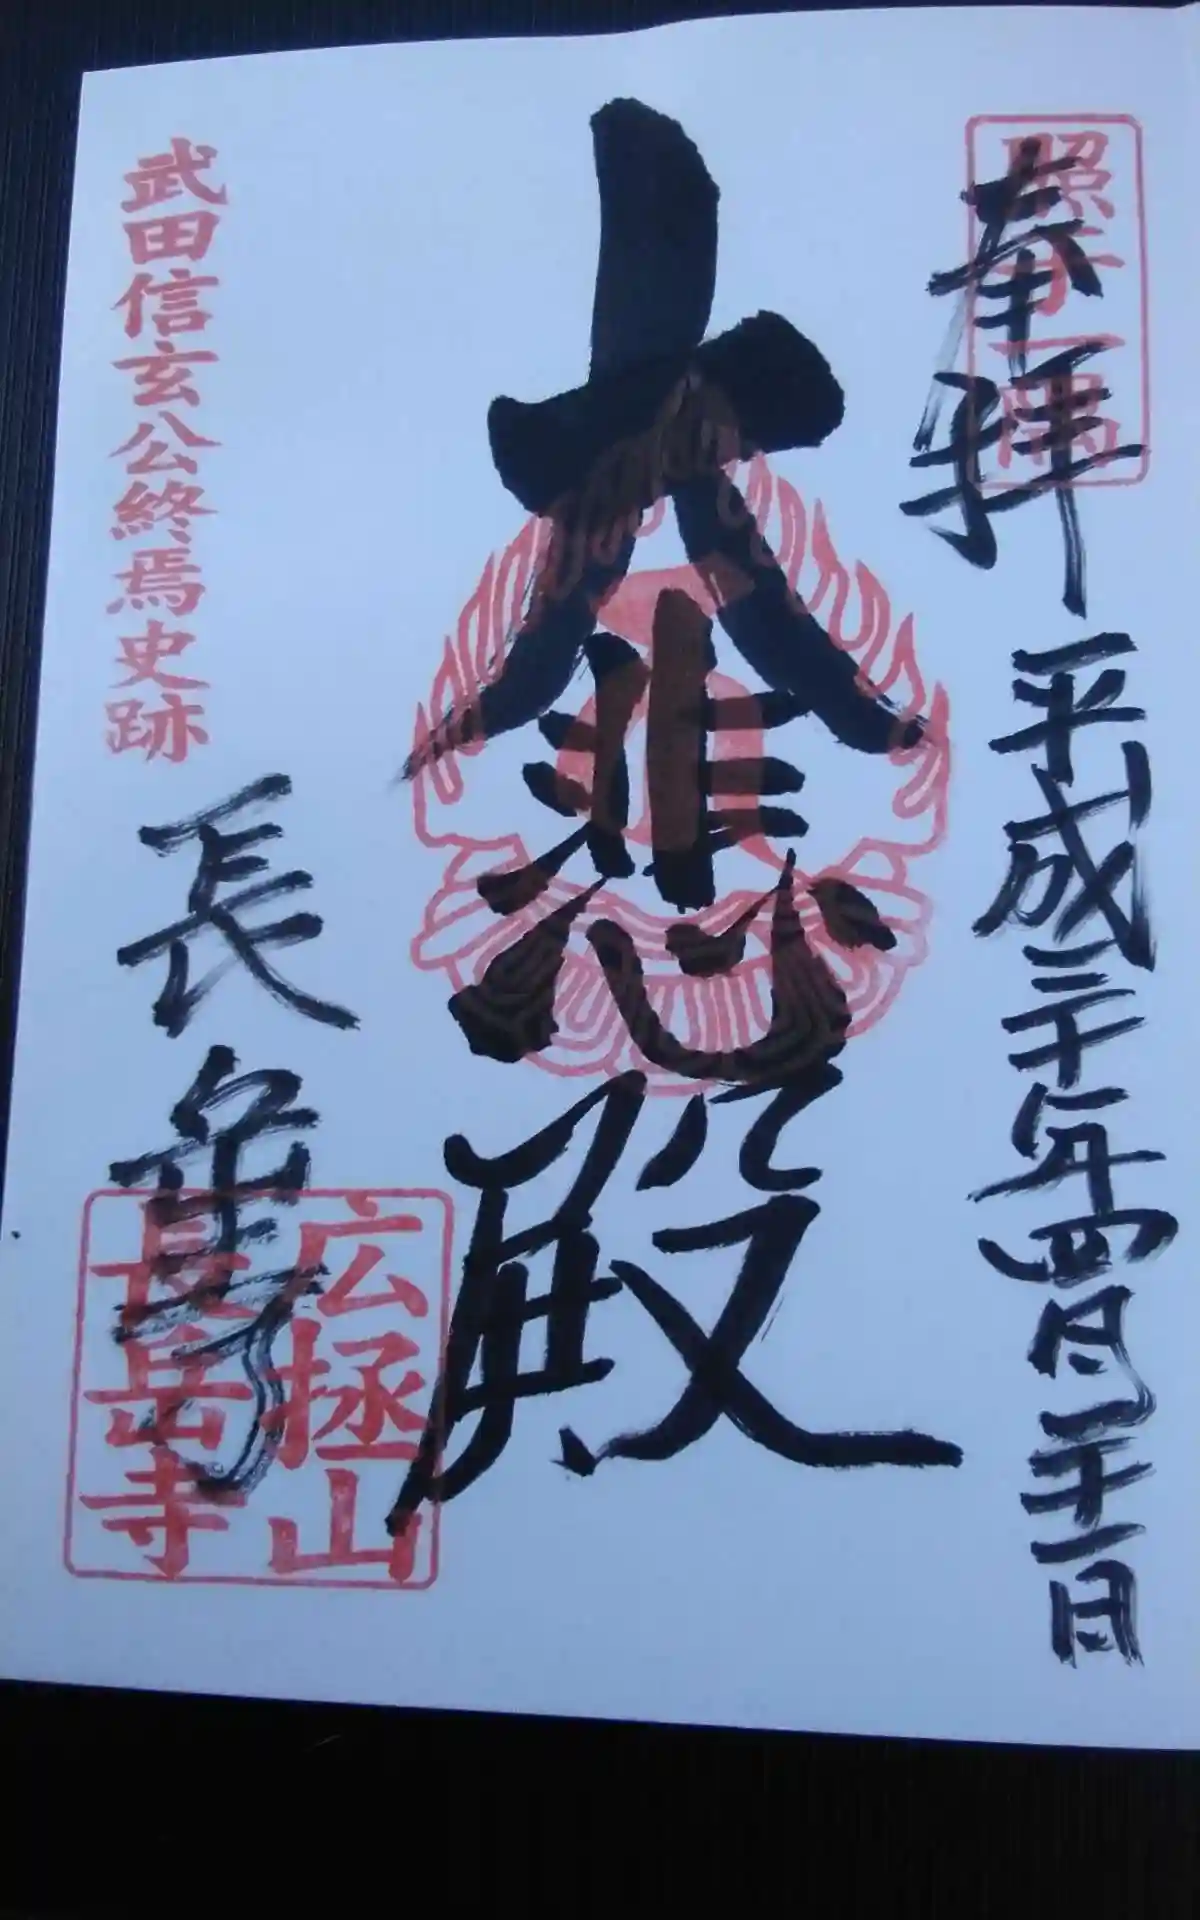 照于一隅
奉拝 平成三十年四月二十一日
大悲殿
武田信玄公終焉史跡
長岳寺
広拯山
長岳寺